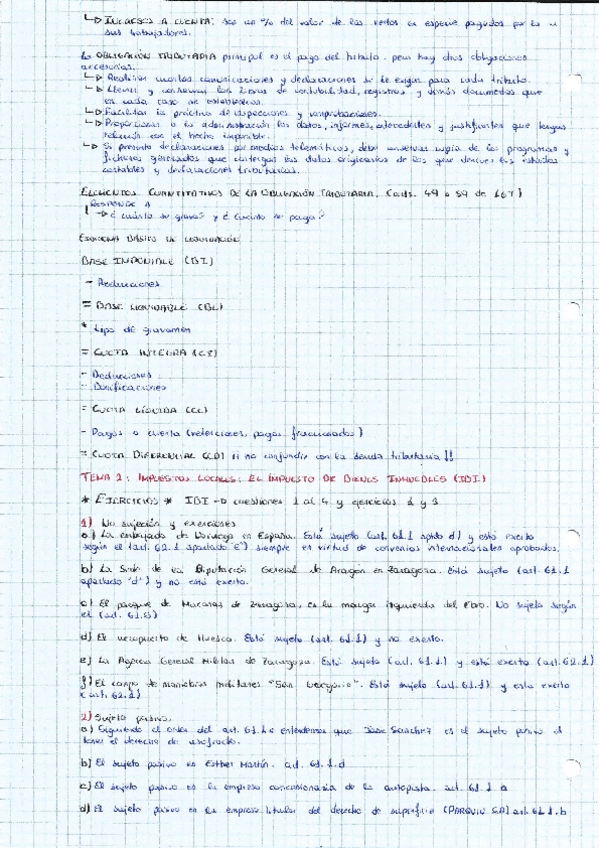 ↳ INGRESOS A CUENTA: son un % del valor de las rentas en especie pagadas por la
sus trabajadores.
La OBLIGACIÓN TRIBUTARIA principal es el pago del tributo. pero hay otras obligaciones
accesorias.
↳ Realizar cuantas comunicaciones y declaraciones se le exijan para cada tributo.
↳ Llevar y conservar los libros de contabilidad, registros y demás documentos que
en cada caso se establezca.
↳ Facilitar la práctica de inspecciones y comprobaciones.
↳ Proporcionar a la administración los datos, informes, antecedentes y justificantes que tengan
relación con el hecho imponible.
↳ Si presenta declaraciones por medios telemáticos, debe conservar copia de los programas y
ficheros generados que contengan los datos originarios de los que deriven los estados
contables y declaraciones tributarias.
ELEMENTOS CUANTITATIVOS DE LA OBLIGACIÓN TRIBUTARIA. (arts. 49 a 59 de LGT)
RESPONDE A
↳ ¿ cuánto se grava? y ¿ cuánto se paga?
ESQUEMA BÁSICO DE LIQUIDACIÓN
BASE IMPONIBLE (BI)
- Reducciones
= BASE LIQUIDABLE (BL)
* tipo de gravamen
= CUOTA INTEGRA (CI)
- Deducciones
- Bonificaciones
= CUOTA LÍQUIDA (CL)
- Pagos a cuenta (retenciones, pagos fraccionados)
= CUOTA DIFERENCIAL (CD) ¡¡ no confundir con la deuda tributaria!!
TEMA 2: IMPUESTOS LOCALES: EL IMPUESTO DE BIENES INMUEBLES (IBI)
* EJERCICIOS * IBI → cuestiones 1 al 4 y ejercicios 1 y 3
1) No sujeción y exenciones
a) La embajada de Noruega en España. Está sujeto (art. 61.1 aptdo d) y está exento
según el (art. 62.1 apartado E") siempre en virtud de convenios internacionales aprobados.
b) La Sede de la Diputación General de Aragón en Zaragoza. Está sujeto (art. 61.1
apartado "d") y no está exento.
c) El parque de Macanaz de Zaragoza, en la margen izquierda del Ebro. No sujeto según
el (art. 61.5)
d) El aeropuerto de Huesca. Está sujeto (art. 61.1) y no exento.
e) La Agencia General Militar de Zaragoza. Está sujeto (art. 61.1) y está exento (art. 62.1)
f) El campo de maniobras militares "San Gregorio". Está sujeto (art. 61.1) y está exento
(art. 62.1)
2) Sujeto pasivo.
a) Siguiendo el orden del art. 61.1.c entendemos que José Sánchez es el sujeto pasivo al
tener el derecho de usufructo.
b) El sujeto pasivo es Esther Martín. art. 61.1.d
c) El sujeto pasivo es la empresa concesionaria de la autopista. art. 61.1.a
d) El sujeto pasivo es la empresa titular del derecho de superficie (PARQUIN SA) art 61.1.b